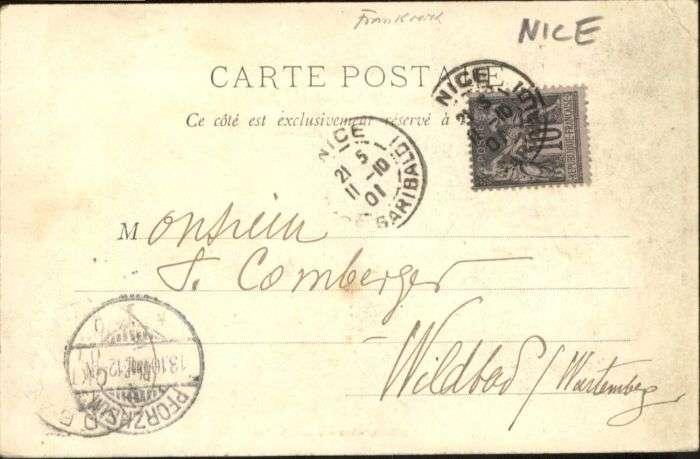 Frankreich
NICE
CARTE POSTALE
Ce côté est exclusivement réservé à
NICE
21 5
11 -10
01
GARIBALDI
NICE
GARIBALDI
POSTE
10
REPUBLIQUE FRANCAISE
Monsieur
S. Comberger
Wildbad / Würtemberg
PFORZHEIM
13.10